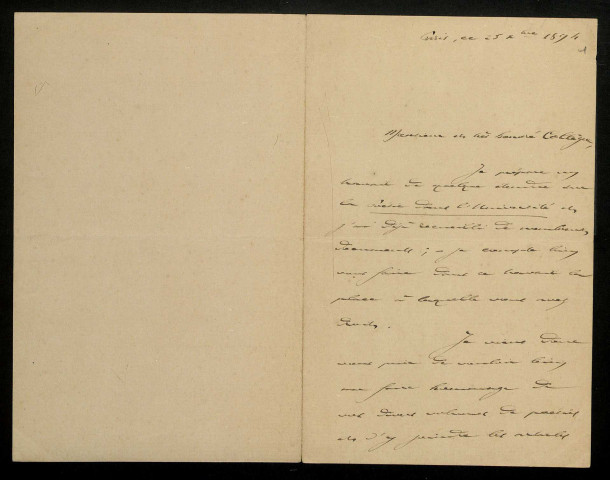 Paris, ce 25 Xbre 1894
1
Monsieur et très honoré Collègue,
Je prépare un
travail de quelque étendue sur
la poésie dans l'Université et
j'ai déjà recueilli de nombreux
documents ; – je compte bien
vous faire dans ce travail la
place à laquelle vous avez
droit.
Je viens donc
vous prier de vouloir bien
me faire hommage de
vos divers volumes de poésies
et d'y joindre les